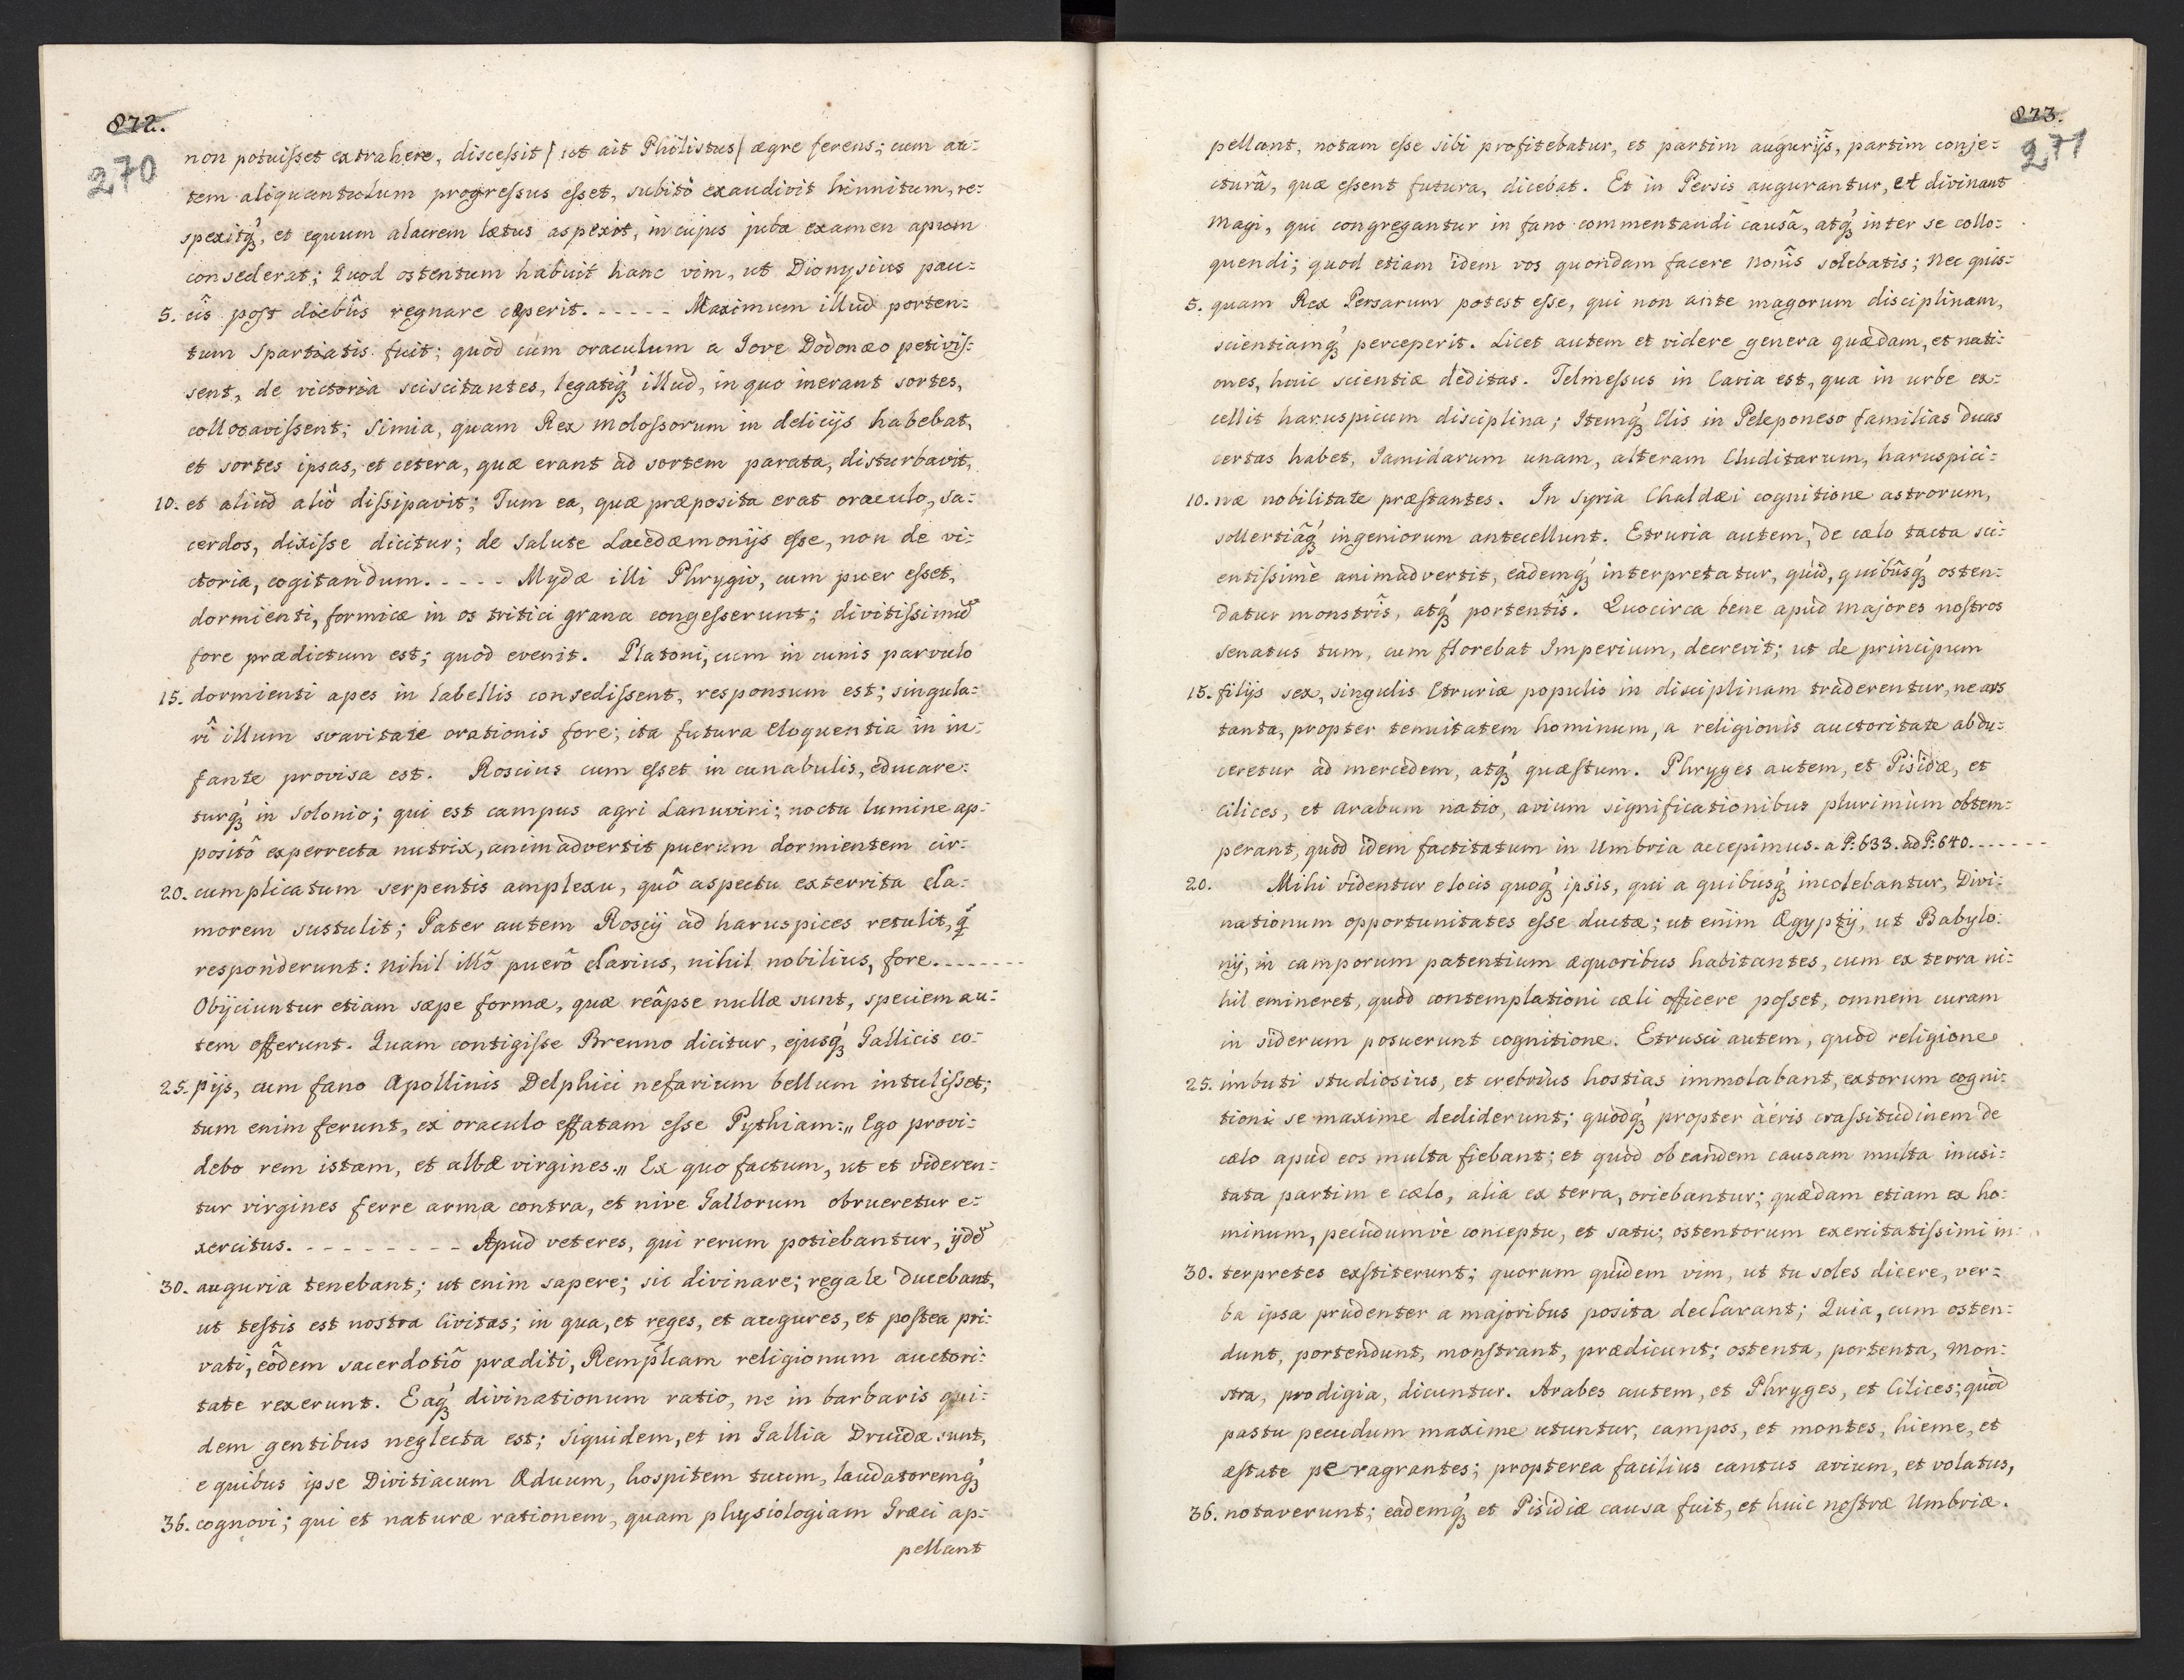 872.
270
non potuiſset extrahere, disceſsit / ut ait Philistus / ægre ferens; cum au=
tem aliquantulum progreſsus eſset, subitò exaudivit hinnitum, re=
spexitq́ꝫ, et equum alacrem lætus aspexit, in cujus juba examen apum
consederat; Quod ostentum habuit hanc vim, ut Dionysius pau=
5. cîs post diebûs regnare cæperit. ----- Maximum illud porten=
tum Spartiatis fuit; quòd cùm oraculum a Jove Dodonæo petiviſ=
sent, de victoria sciscitantes, legatiq́ꝫ illud, in quo inerant sortes,
collocaviſsent; Simia, quam Rex Moloſsorum in delicijs habebat,
et sortes ipsas, et cetera, quæ erant ad sortem parata, disturbavit,
10. et aliud aliò diſsipavit; Tum ea, quæ præposita erat oraculo, sa=
cerdos, dixiſse dicitur; de salute Lacedæmonijs eſse, non de vi=
ctoria, cogitandum. ---- Mydæ illi Phrygio, cum puer eſset,
dormienti, formicæ in os tritici grana congeſserunt; divitiſsimũ
fore prædictum est; quòd evenit. Platoni, cum in cunis parvulo
15. dormienti apes in labellis consediſsent, responsum est; singula=
rî illum svavitate orationis fore; ita futura Eloquentia in in=
fante provisa est. Roscius cum eſset in cunabulis, educare=
turq́ꝫ in Solonio; qui est campus agri Lanuvini; noctu lumine ap=
positô experrecta nutrix, animadvertit puerum dormientem cir=
20. cumplicatum serpentis amplexu, quô aspectu exterrita cla=
morem sustulit; Pater autem Roscij ad haruspices retulit, q̃
responderunt: nihil illô puerô clarius, nihil nobilius, fore. -------
Obijciuntur etiam sæpe formæ, quæ reâpse nullæ sunt, speciem au=
tem offerunt. Quam contigiſse Brenno dicitur, ejusq́ꝫ Gallicis co=
25. pijs, cum fano Apollinis Delphici nefarium bellum intuliſset;
tum enim ferunt, ex oraculo effatam eſse Pythiam: „ Ego provi=
debo rem istam, et albæ virgines. „ Ex quo factum, ut et videren=
tur virgines ferre arma contra, et nive Gallorum obrueretur e=
xercitus. --------- Apud veteres, qui rerum potiebantur, ijdẽ
30. auguria tenebant; ut enim sapere; sic divinare; regale ducebant,
ut teſtis est nostra Civitas; in qua, et reges, et augures, et poſtea pri=
vati, eôdem sacerdotiô præditi, Rempłcam religionum auctori=
tate rexerunt. Eaq́ꝫ divinationum ratio, ne in barbaris qui=
dem gentibus neglecta est; siquidem, et in Gallia Druidæ sunt,
e quibus ipse Divitiacum Æduum, hospitem tuum, laudatoremq́ꝫ
36. cognovi; qui et naturæ rationem, quam physiologiam Græci ap=
pellant
873.
271
pellant, notam eſse sibi profitebatur, et partim augurijs, partim conje=
cturâ, quæ eſsent futura, dicebat. Et in Persis augurantur, et divinant
Magi, qui congregantur in fano commentandi causâ, atq́ꝫ inter se collo=
quendi; quod etiam idem vos quondam facere nonîs solebatis; Nec quis=
5. quam Rex Persarum potest eſse, qui non ante magorum disciplinam,
scientiamq́ꝫ perceperit. Licet autem et videre genera quædam, et nati=
ones, huic scientiæ deditas. Telmeſsus in Caria est, qua in urbe ex=
cellit haruspicum disciplina; Itemq́ꝫ Elis in Peleponeso familias duas
certas habet, Jamidarum unam, alteram Cluditarum, haruspici=
10. næ nobilitate præſtantes. In Syria Chaldæi cognitione astrorum,
sollertiâq́ꝫ ingeniorum antecellunt. Etruria autem, de cælo tacta sci=
entiſsimè animadvertit, eademq́ꝫ interpretatur, quid, quibûsq́ꝫ osten=
datur monstrîs, atq́ꝫ portentîs. Quocirca bene apud majores noſtros
senatus tum, cum florebat Imperium, decrevit; ut de principum
15. filijs sex, singulis Etruriæ populis in disciplinam traderentur, ne ars
tanta, propter tenuitatem hominum, a religionis auctoritate abdu=
ceretur ad mercedem, atq́ꝫ quæſtum. Phryges autem, et Pisidæ, et
Cilices, et Arabum natio, avium significationibus plurimùm obtem=
perant, quòd idem factitatum in Umbria accepimus. a P: 633. ad P: 640. ------
20. Mihi videntur e locis quoq́ꝫ ipsis, qui a quibusq́ꝫ incolebantur, Divi=
nationum opportunitates eſse ductæ; ut enim Ægyptij, ut Babylo=
nij, in camporum patentium æquoribus habitantes, cum ex terra ni=
hil emineret, quòd contemplationi cæli officere poſset, omnem curam
in siderum posuerunt cognitione. Etrusci autem, quòd religione
25. imbuti studiosius, et crebrius hostias immolabant, extorum cogni=
tioni se maxime dediderunt; quòdq́ꝫ propter àéris craſsitudinem de
cælo apud eos multa fiebant; et quòd ob eandem causam multa inusi=
tata partim e cælo, alia ex terra, oriebantur; quædam etiam ex ho=
minum, pecudumvè conceptu, et satu; ostentorum exercitatiſsimi in=
30. terpretes exſtiterunt; quorum quidem vim, ut tu soles dicere, ver=
ba ipsa prudenter a majoribus posita declarant; Quia, cum osten=
dunt, portendunt, monſtrant, prædicunt; ostenta, portenta, mon=
stra, prodigia, dicuntur. Arabes autem, et Phryges, et Cilices; quòd
pastu pecudum maxime utuntur, campos, et montes, hieme, et
æſtate peragrantes; propterea facilius cantus avium, et volatus,
36. notaverunt; eademq́ꝫ et Pisidiæ causa fuit, et huic noſtræ Umbriæ.